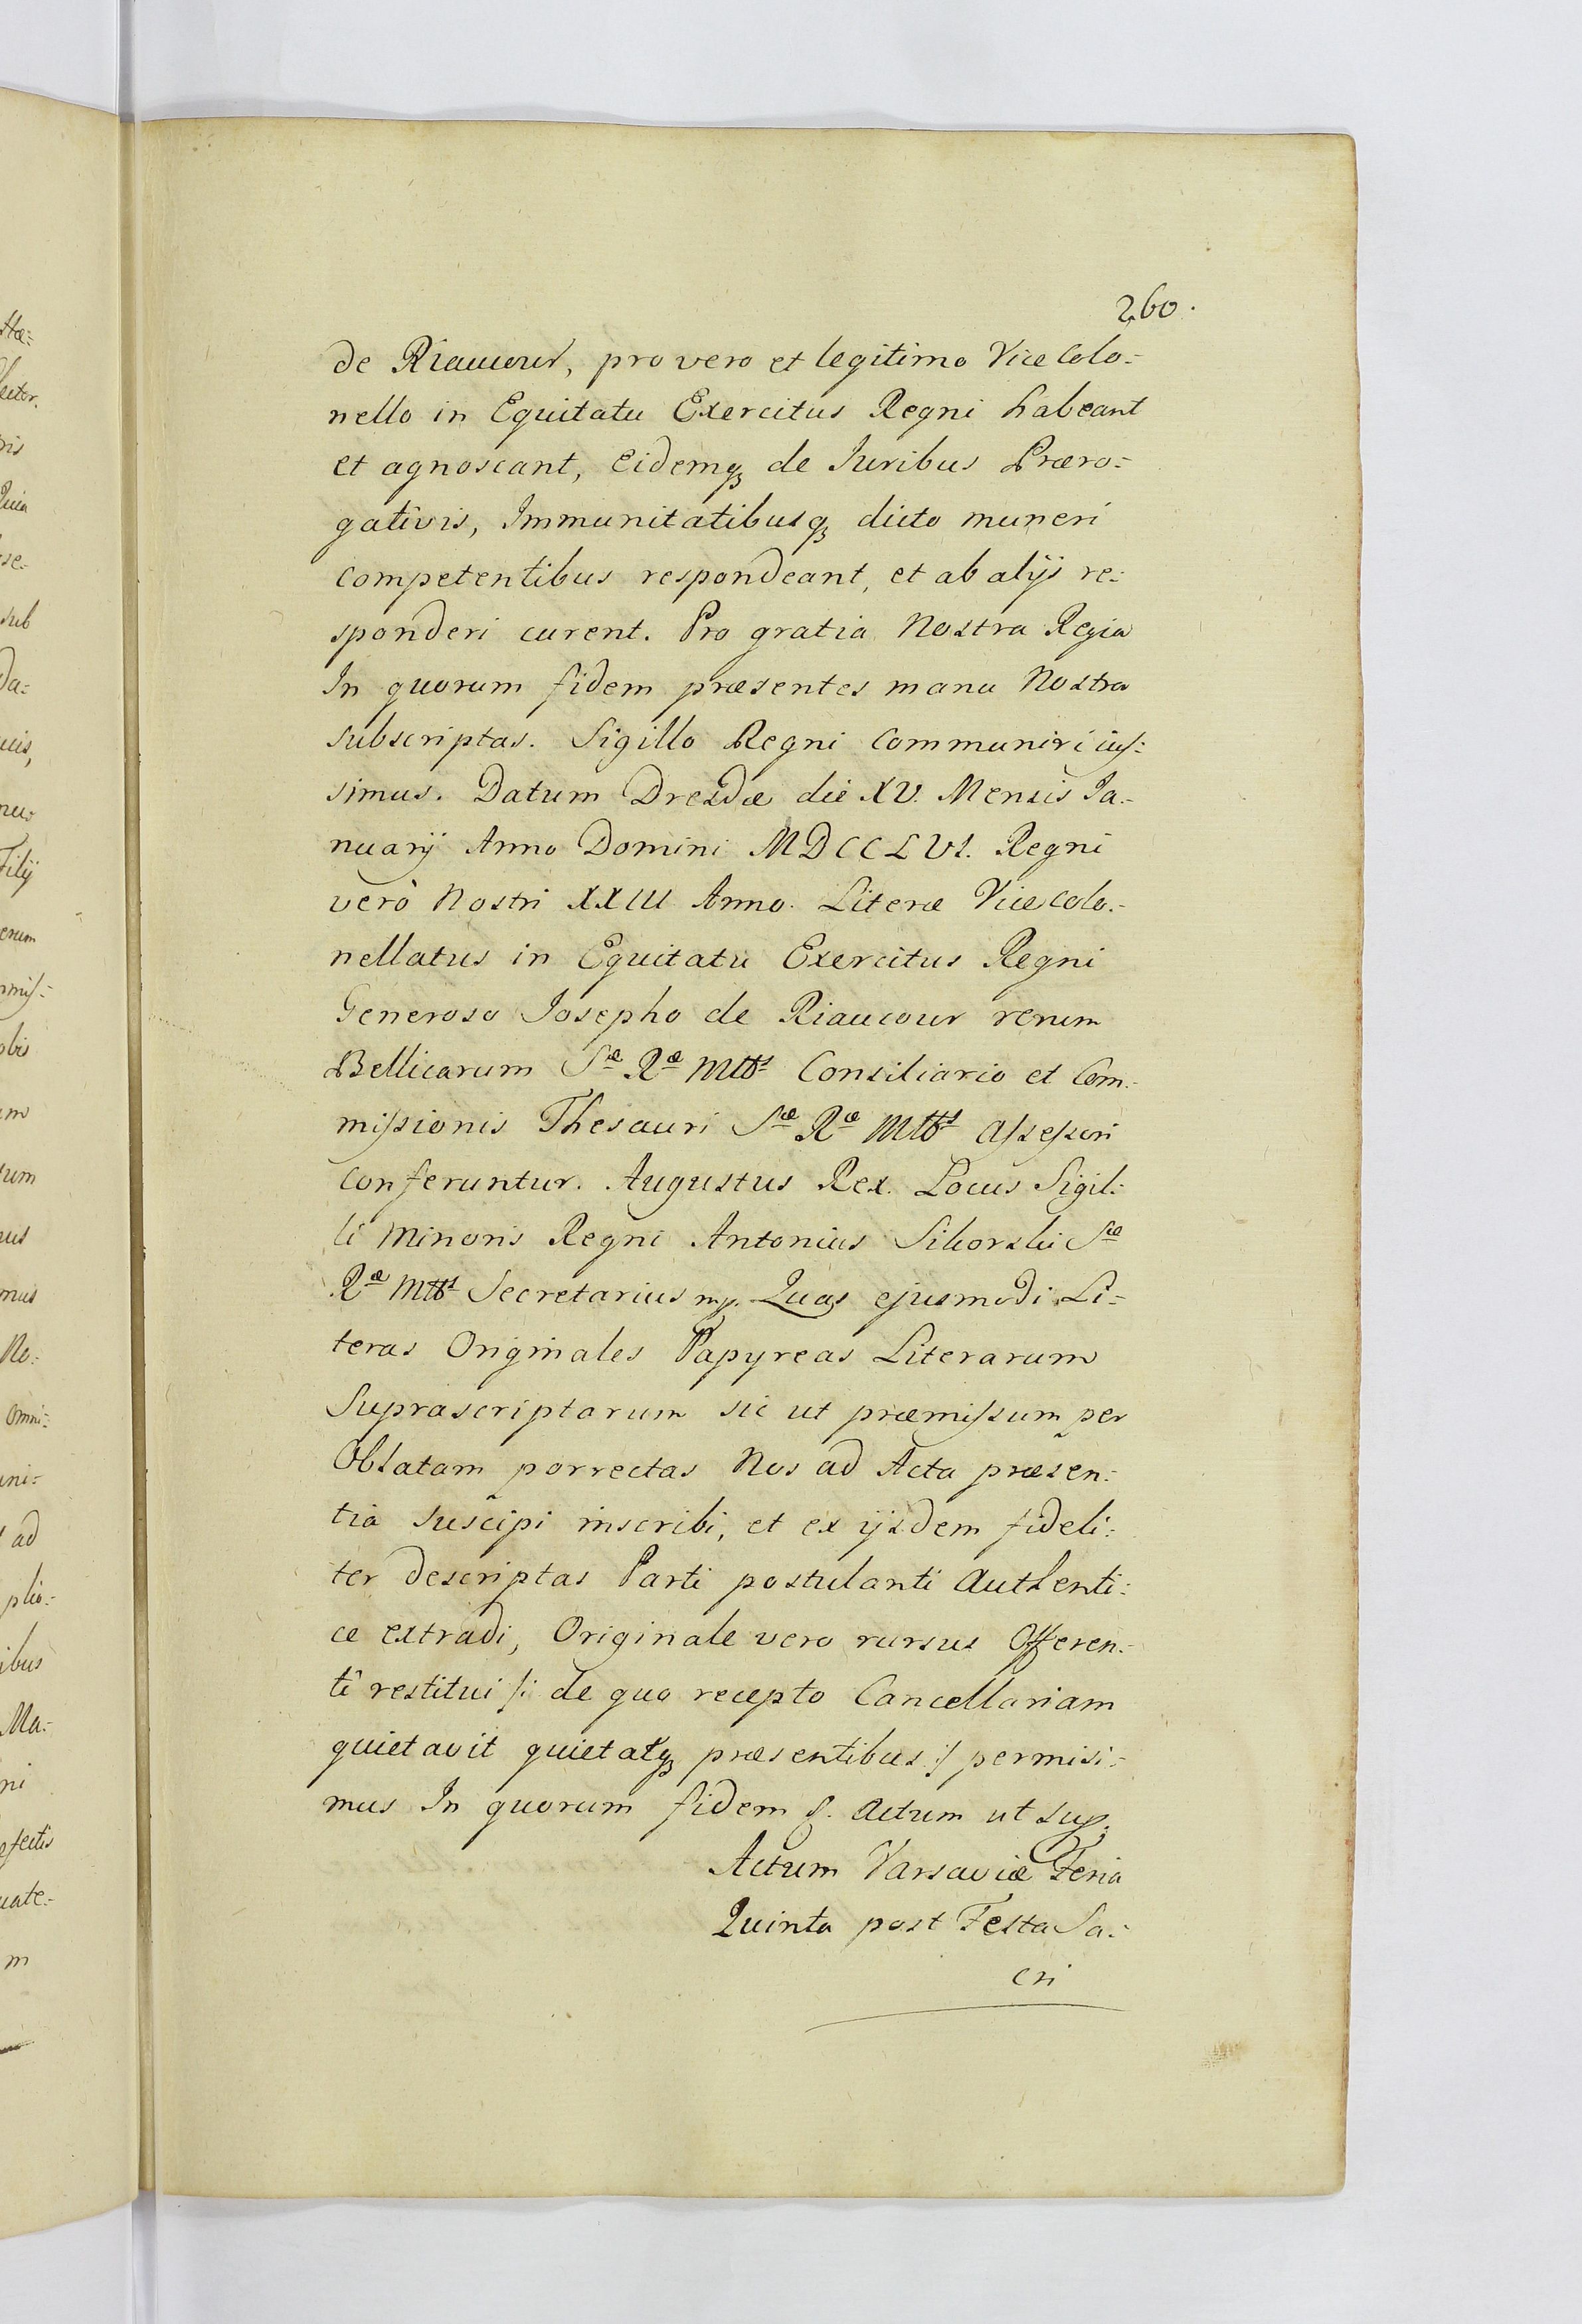 260.
de Riaucour, pro vero et legitimo Vice Colo=
nello in Equitatu Exercitus Regni habeant
et agnoscant, Eidemqꝫ de Iuribus Præro=
gativis, Immunitatibusqꝫ dicto muneri
competentibus respondeant, et ab alijs re=
sponderi curent. Pro gratia Nostra Regia
In quorum fidem præsentes manu Nostra
subscriptas. Sigillo Regni Communiri jus=
simus. Datum Dresdæ die XV. Mensis Ja=
nuarij Anno Domini MDCCLVI. Regni
verò Nostri XXIII Anno. Literæ Vice Colo=
nellatus in Equitatu Exercitus Regni
Generoso Josepho de Riaucour rerum
Bellicarum Sæ Ræ Mttis Consiliario et Com=
missionis Thesauri Sæ Ræ Mttis Assessori
Conferuntur. Augustus Rex. Locus Sigil=
li Minoris Regni Antonius Sikorski Sæ
Ræ Mttis Secretarius mp. Quas ejusmodi Li=
teras Originales Papyreas Literarum
Suprascriptarum sic ut præmissum per
Oblatam porrectas Nos ad Acta præsen=
tia suscipi inscribi, et ex ijsdem fideli=
ter descriptas Parti postulanti Authenti=
ce extradi, Originale vero rursus Offeren=
ti restitui /: de quo recepto Cancellariam
quietavit quietatqꝫ præsentibus :/ permisi=
mus In quorum fidem &. Actum ut sup.
Actum Varsaviæ Feria
Quinta post Festa Sa=
cri